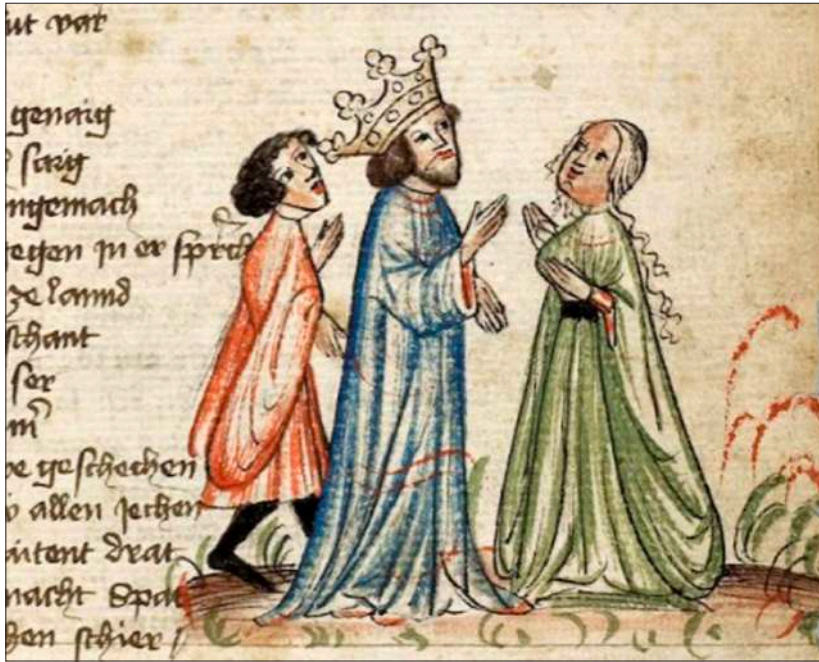 ut var
genaig
saig
ngemach
egen in er sprch
ze lannd
schant
ser
m
be geschechen
allen jechen
aitent drat
nacht spat
hen schier